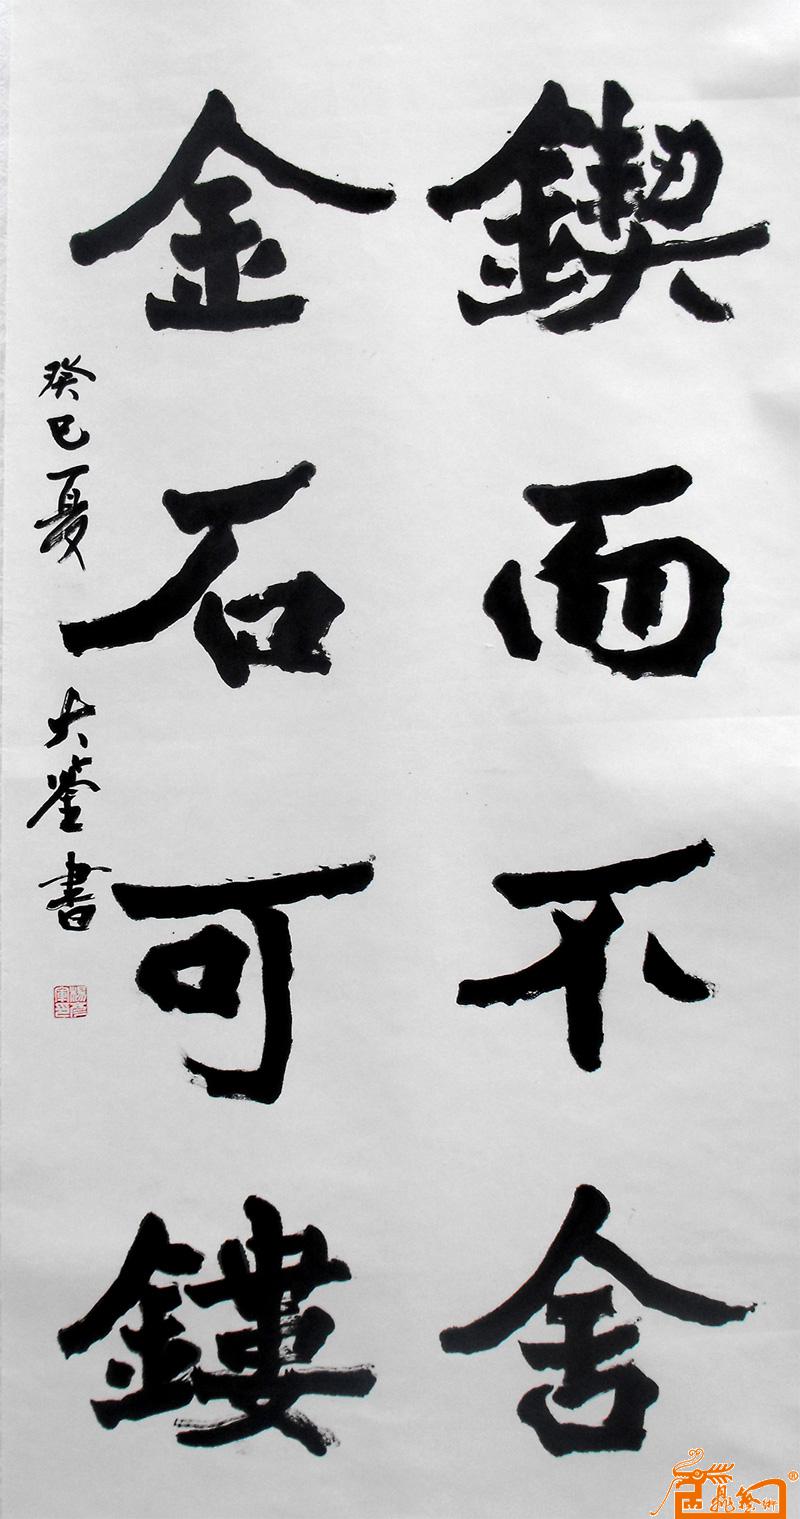 鍥而不舍
金石可鏤
癸巳夏 大鑒書